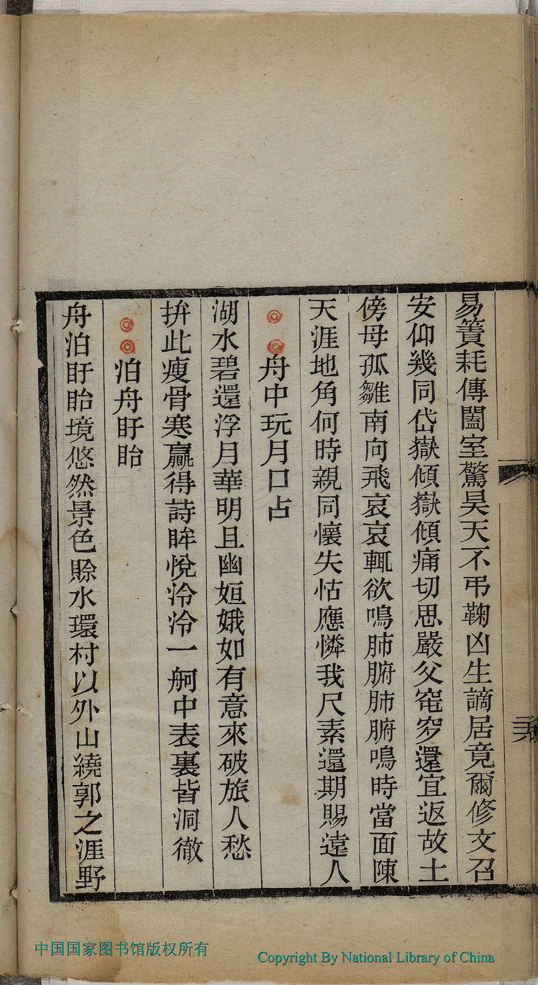 易簀耗傳闔室驚昊天不弔鞠凶生謫居竟爾修文召
安仰幾同岱嶽傾嶽傾痛切思嚴父窀穸還宜返故土
傍母孤雛南向飛哀哀輒欲鳴肺腑肺腑鳴時當面陳
天涯地角何時親同懷失怙應憐我尺素還期賜遠人
舟中玩月口占
湖水碧還浮月華明且幽姮娥如有意來破旅人愁
拚此瘦骨寒贏得詩眸悅泠泠一舸中表裏皆洞徹
泊舟盱眙
舟泊盱眙境悠然景色賒水環村以外山繞郭之涯野
中国国家图书馆版权所有
Copyright By National Library of China